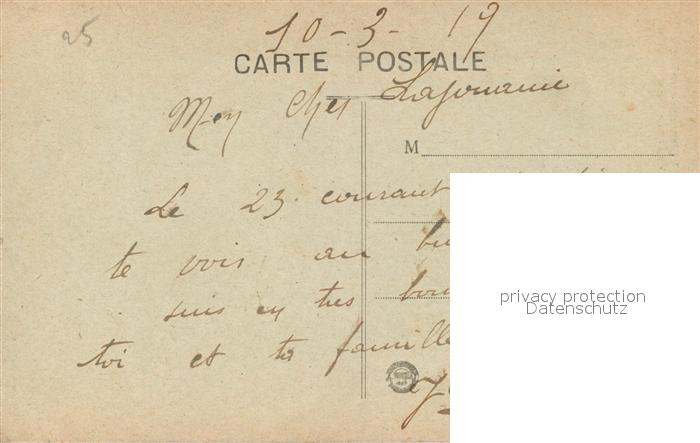 25
10-3-19
CARTE POSTALE
Mon cher Lajouanie
M
Le 23 courant
te vois au
suis en tres
toi et ta famille
privacy protection
Datenschutz